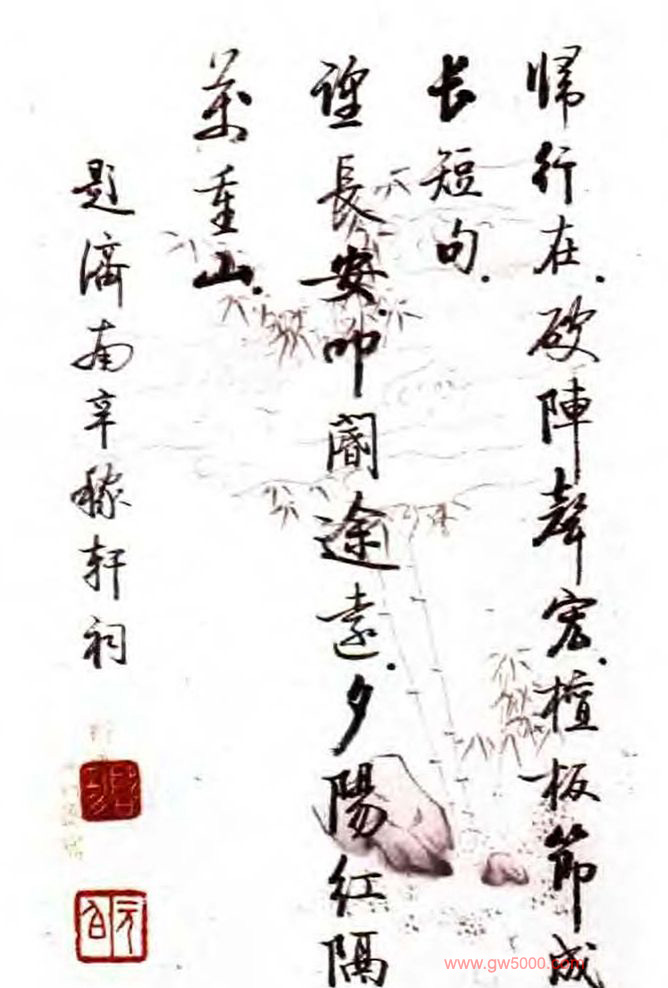 归行在.破陣聲宏.檀板節成
长短句.
望長安.叩閽途遠.夕陽红隔
萬重山.
题濟南辛稼轩祠
www.gw5000.com